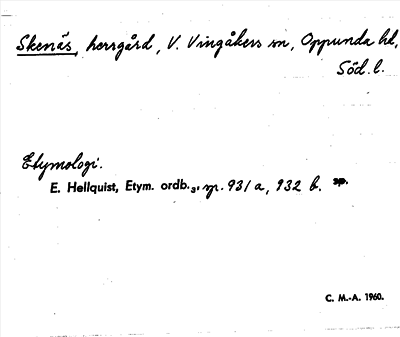 Skenäs, herrgård, V. Vingåkers sn, Oppunda hd,
Söd. l.
Etymologi.
E. Hellquist, Etym. ordb.3, sp. 931 a, 932 b. sp.
C. M.-A. 1960.